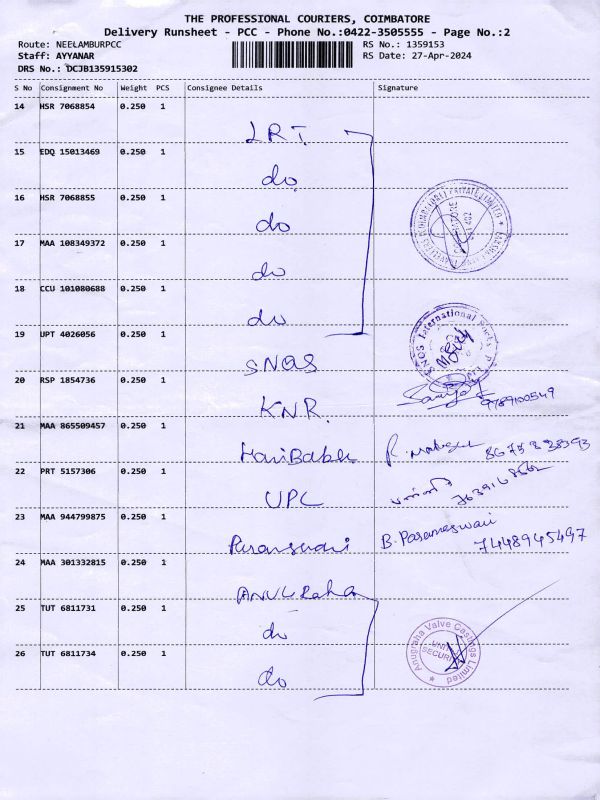 THE PROFESSIONAL COURIERS, COIMBATORE
Delivery Runsheet - PCC - Phone No.:0422-3505555 - Page No.:2
Route: NEELAMBURPCC RS No.: 1359153
Staff: AYYANAR RS Date: 27-Apr-2024
DRS No.: DCJB135915302
S No Consignment No Weight PCS Consignee Details Signature
14 HSR 7068854 0.250 1
LRT
15 EDQ 15013469 0.250 1
do
16 HSR 7068855 0.250 1
do
17 MAA 108349372 0.250 1
do
18 CCU 101080688 0.250 1
do
19 UPT 4026056 0.250 1
SNQS
SNQS International Socks P Ltd
20 RSP 1854736 0.250 1
KNR. 9789100549
21 MAA 865509457 0.250 1
HariBabu
22 PRT 5157306 0.250 1
UPC
23 MAA 944799875 0.250 1
B. Parameswari
7448945497
24 MAA 301332815 0.250 1
25 TUT 6811731 0.250 1
do
Anugraha Valve Castings Limited
UNIT
SECURITY
26 TUT 6811734 0.250 1
do